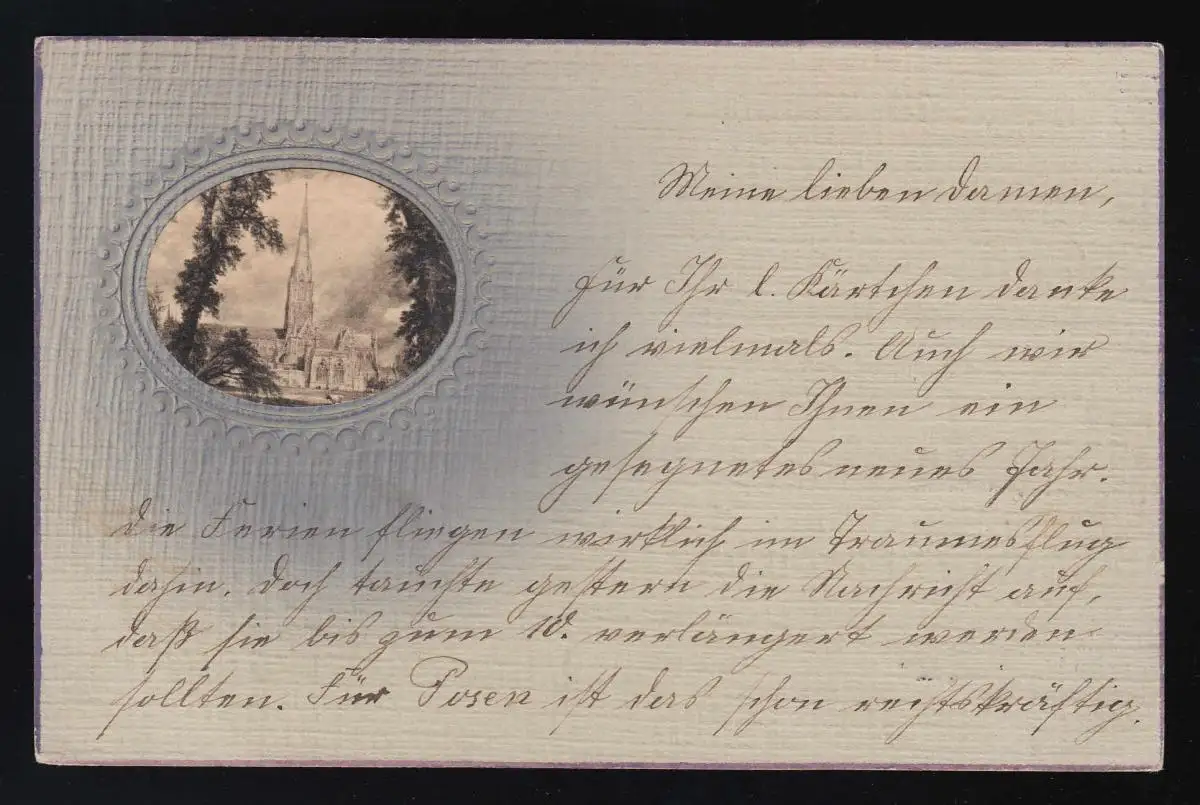 Meine lieben Damen,
für Ihr l. Kärtchen danke
ich vielmals. Auch wir
wünschen Ihnen ein
gesegnetes neues Jahr.
Die Ferien fliegen wirklich im Traumesflug
dahin. Doch tauchte gestern die Nachricht auf,
daß sie bis zum 10. verlängert werden
sollten. Für Posen ist das schon rechtskräftig.